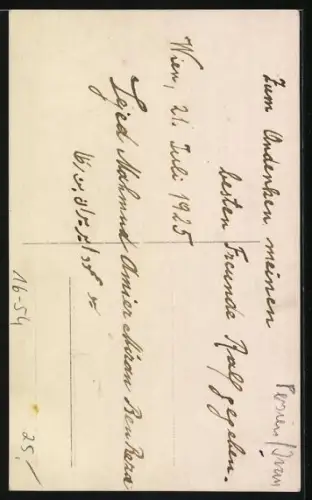 Zum Andenken meinen
besten Freunde Ralf gegeben.
Wien, 21. Juli 1925
Sejed Mahmud Amier
16-54
25.-
Persien/Iran